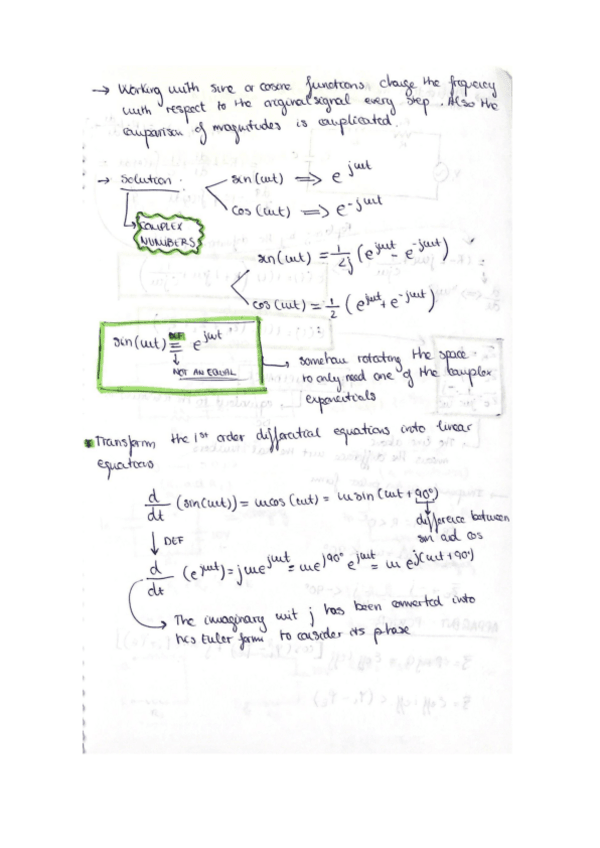 → Working with sine or cosine functions change the frequency
with respect to the original signal every step. Also the
comparison of magnitudes is complicated.
→ Solution:
sin(ωt) => e^jωt
cos(ωt) => e^-jωt
COMPLEX
NUMBERS
sin(ωt) = 1/2j (e^jωt - e^-jωt)
cos(ωt) = 1/2 (e^jωt + e^-jωt)
sin(ωt) DEF = e^jωt
NOT AN EQUAL
→ somehow rotating the space
to only need one of the complex
exponentials
Transform the 1st order differential equations into linear
equations
d/dt (sin(ωt)) = ωcos(ωt) = ωsin(ωt + 90°)
difference between
sin ad cos
↓ DEF
d/dt (e^jωt) = jωe^jωt = ωe^j90° e^jωt = ω e^j(ωt+90°)
→ The imaginary unit j has been converted into
his Euler form to consider its phase